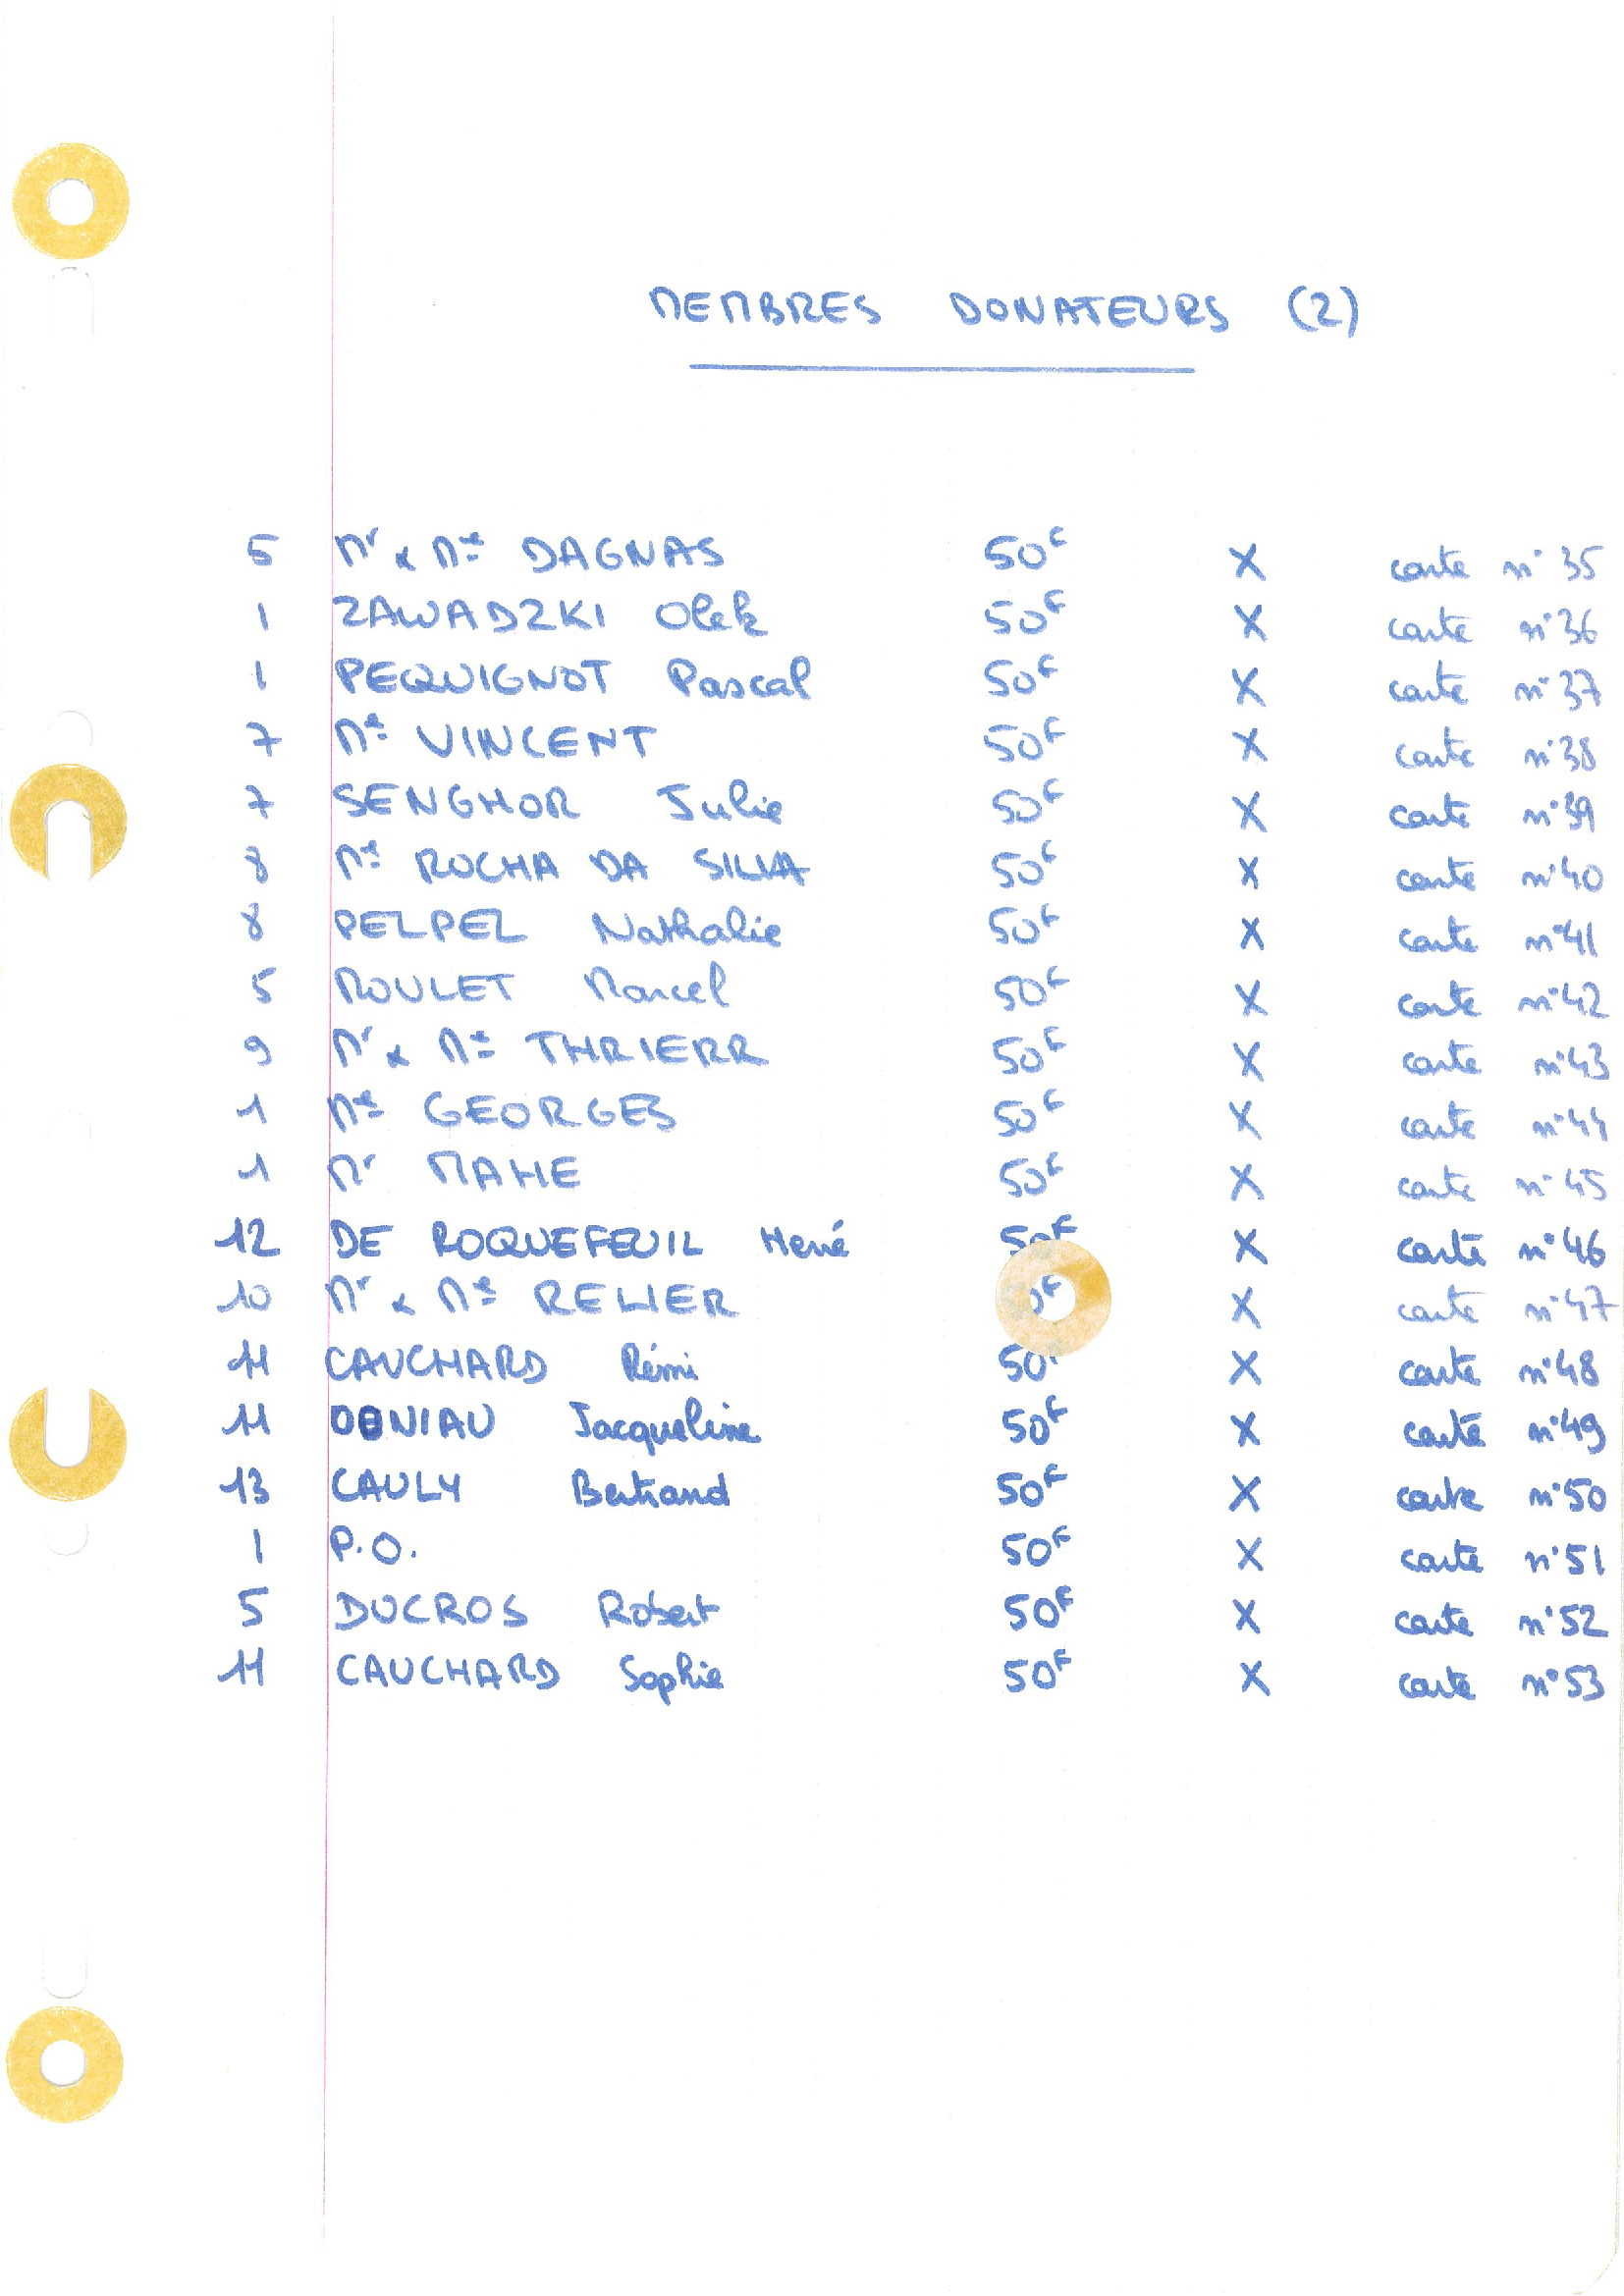 MEMBRES DONATEURS (2)
5 Mr & Me DAGNAS 50F X carte n° 35
1 ZAWADZKI Olek 50F X carte n° 36
1 PEQUIGNOT Pascal 50F X carte n° 37
7 Me VINCENT 50F X carte n° 38
7 SENGHOR Julie 50F X carte n° 39
8 Me ROCHA DA SILVA 50F X carte n° 40
8 PELPEL Nathalie 50F X carte n° 41
5 ROULET Marcel 50F X carte n° 42
9 Mr & Me THRIERR 50F X carte n° 43
1 Me GEORGES 50F X carte n° 44
1 Mr MAHE 50F X carte n° 45
12 DE ROQUEFEUIL Hervé 50F X carte n° 46
10 Mr & Me RELIER 50F X carte n° 47
11 CAUCHARD Rémi 50F X carte n° 48
11 DENIAU Jacqueline 50F X carte n° 49
13 CAULY Bertrand 50F X carte n° 50
1 P.O. 50F X carte n° 51
5 DUCROS Robert 50F X carte n° 52
11 CAUCHARD Sophie 50F X carte n° 53